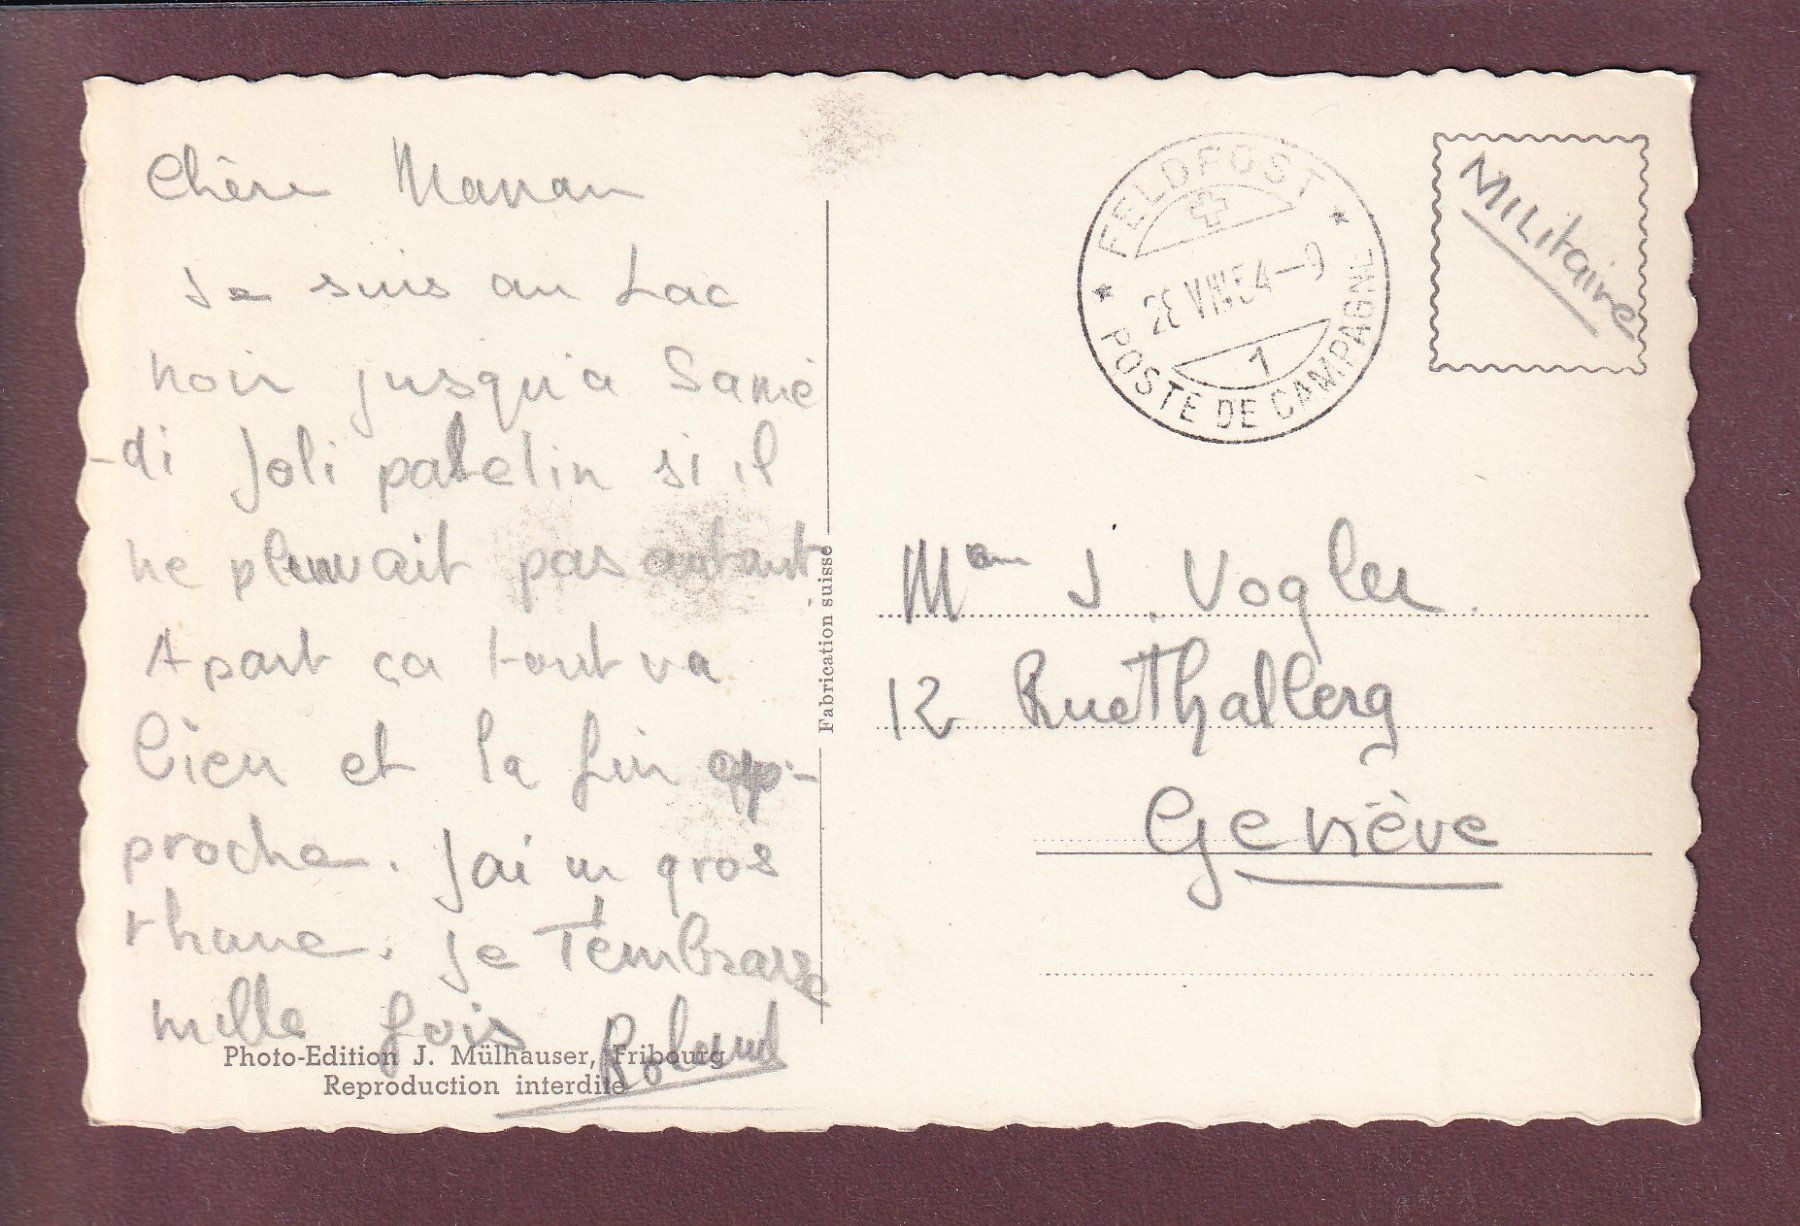 Chère Maman
Je suis au Lac
noir jusqu'a Same
-di Joli patelin si il
ne pleuvait pas autant
Apart ça tout va
bien et la fin ap-
proche. J'ai un gros
rhume. Je t'embrasse
mille fois Roland
Photo-Edition J. Mülhauser, Fribourg
Reproduction interdite
Fabrication suisse
FELDPOST
VIII 54 - 9
1
POSTE DE CAMPAGNE
Militaire
J. Vogler
12 Rue Thalberg
Genève